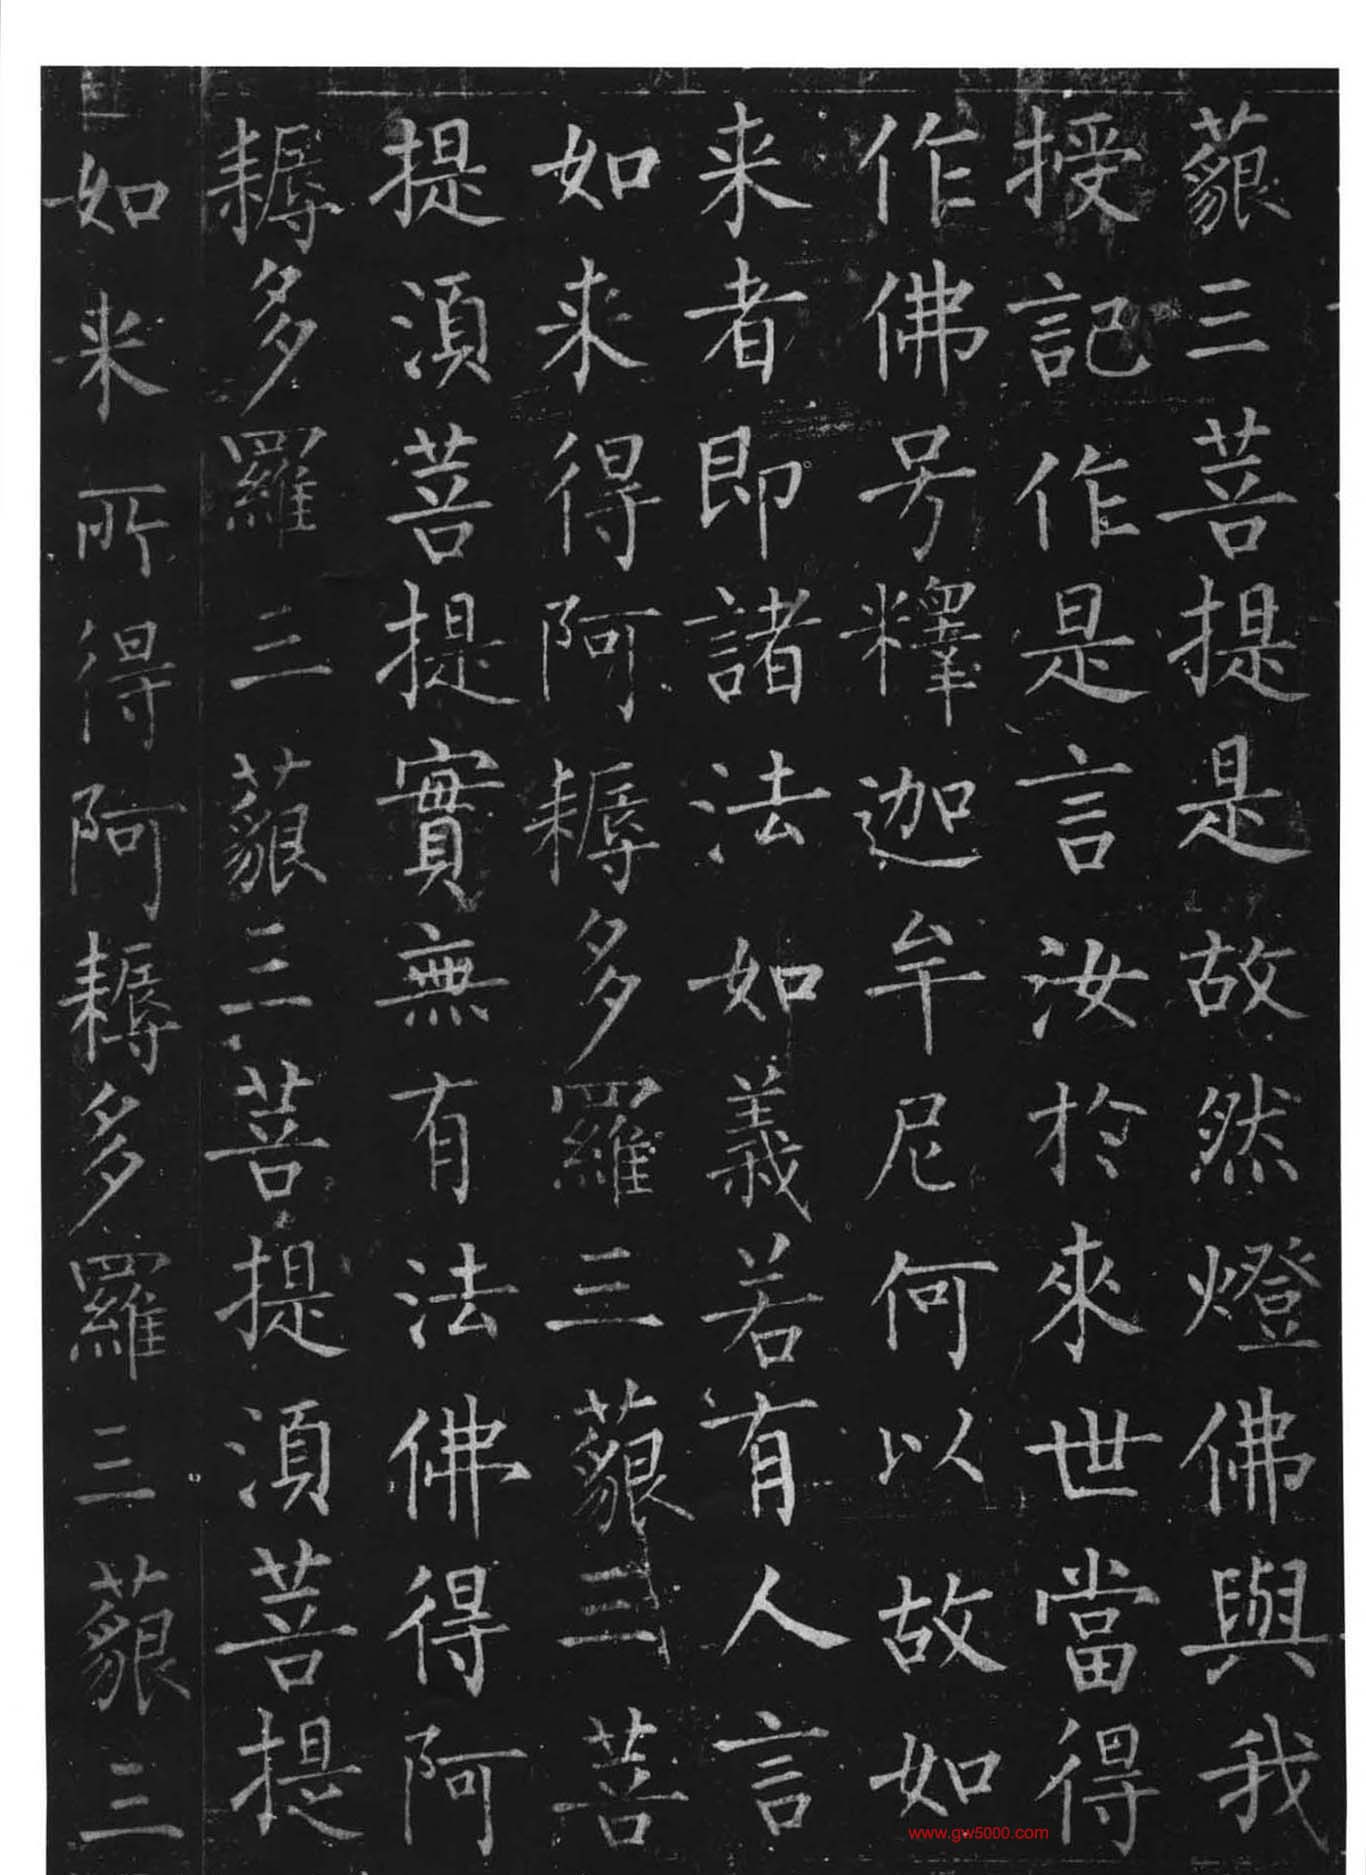 藐三菩提是故然燈佛與我
授記作是言汝於來世當得
作佛号釋迦牟尼何以故如
来者即諸法如義若有人言
如来得阿耨多羅三藐三菩
提湏菩提實無有法佛得阿
耨多羅三藐三菩提湏菩提
如来所得阿耨多羅三藐三
www.gw5000.com